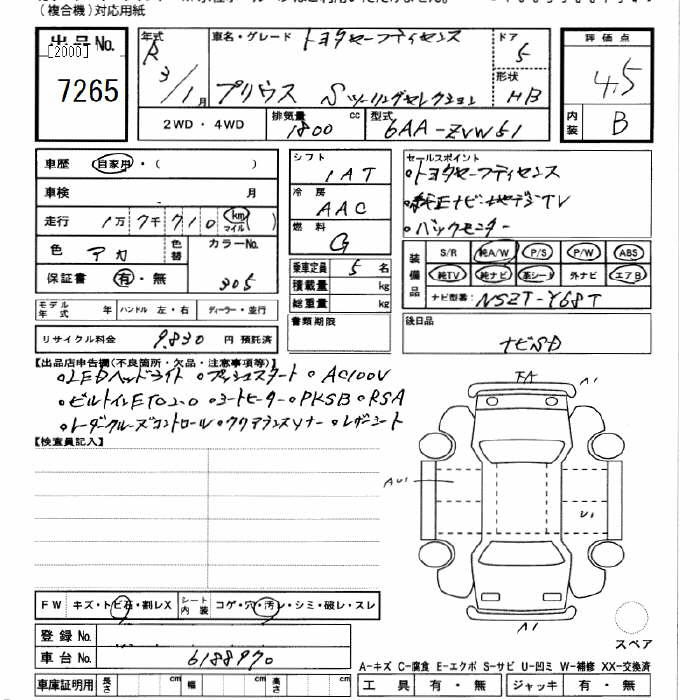 (複合機)対応用紙
出品No.
[2000]
7265
年式
R 3/1月
車名・グレード トヨタセーフティセンス
プリウス Sツーリングセレクション
ドア 5
形状 HB
評価点
4.5
内装 B
2WD・4WD
排気量 1800 cc
型式 6AA-ZVW51
車歴 自家用・( )
車検 月
走行 1万7千710 km マイル
色 アカ 色替
カラーNo. 3U5
保証書 有・無
シフト 1AT
冷房 AAC
燃料 G
乗車定員 5名
積載量 kg
総重量 kg
書類期限
セールスポイント
・トヨタセーフティセンス
・純正ナビ地デジTV
・バックモニター
装備品
S/R 純A/W P/S P/W ABS
純TV 純ナビ 革シート 外ナビ エアB
ナビ型番: NSZT-Y68T
後日品
ナビSD
モデル年式 年 ハンドル 左・右 ディーラー・並行
リサイクル料金 9,830 円 預託済
【出品店申告欄(不良箇所・欠品・注意事項等)】
・LEDヘッドライト ・プッシュスタート ・AC100V
・ビルトインETC2.0 ・シートヒーター ・PKSB ・RSA
・レーダクルーズコントロール ・クリアランスソナー ・レザーシート
【検査員記入】
A1
A1
AU1
U1
A1
FW キズ・トビ石・割レX
シート内装 コゲ・穴・汚レ・シミ・破レ・スレ
登録No.
車台No. 6188970
スペア
A-キズ C-腐食 E-エクボ S-サビ U-凹ミ W-補修 XX-交換済
車庫証明用 長さ cm 幅 cm 高さ cm
工具 有・無 ジャッキ 有・無